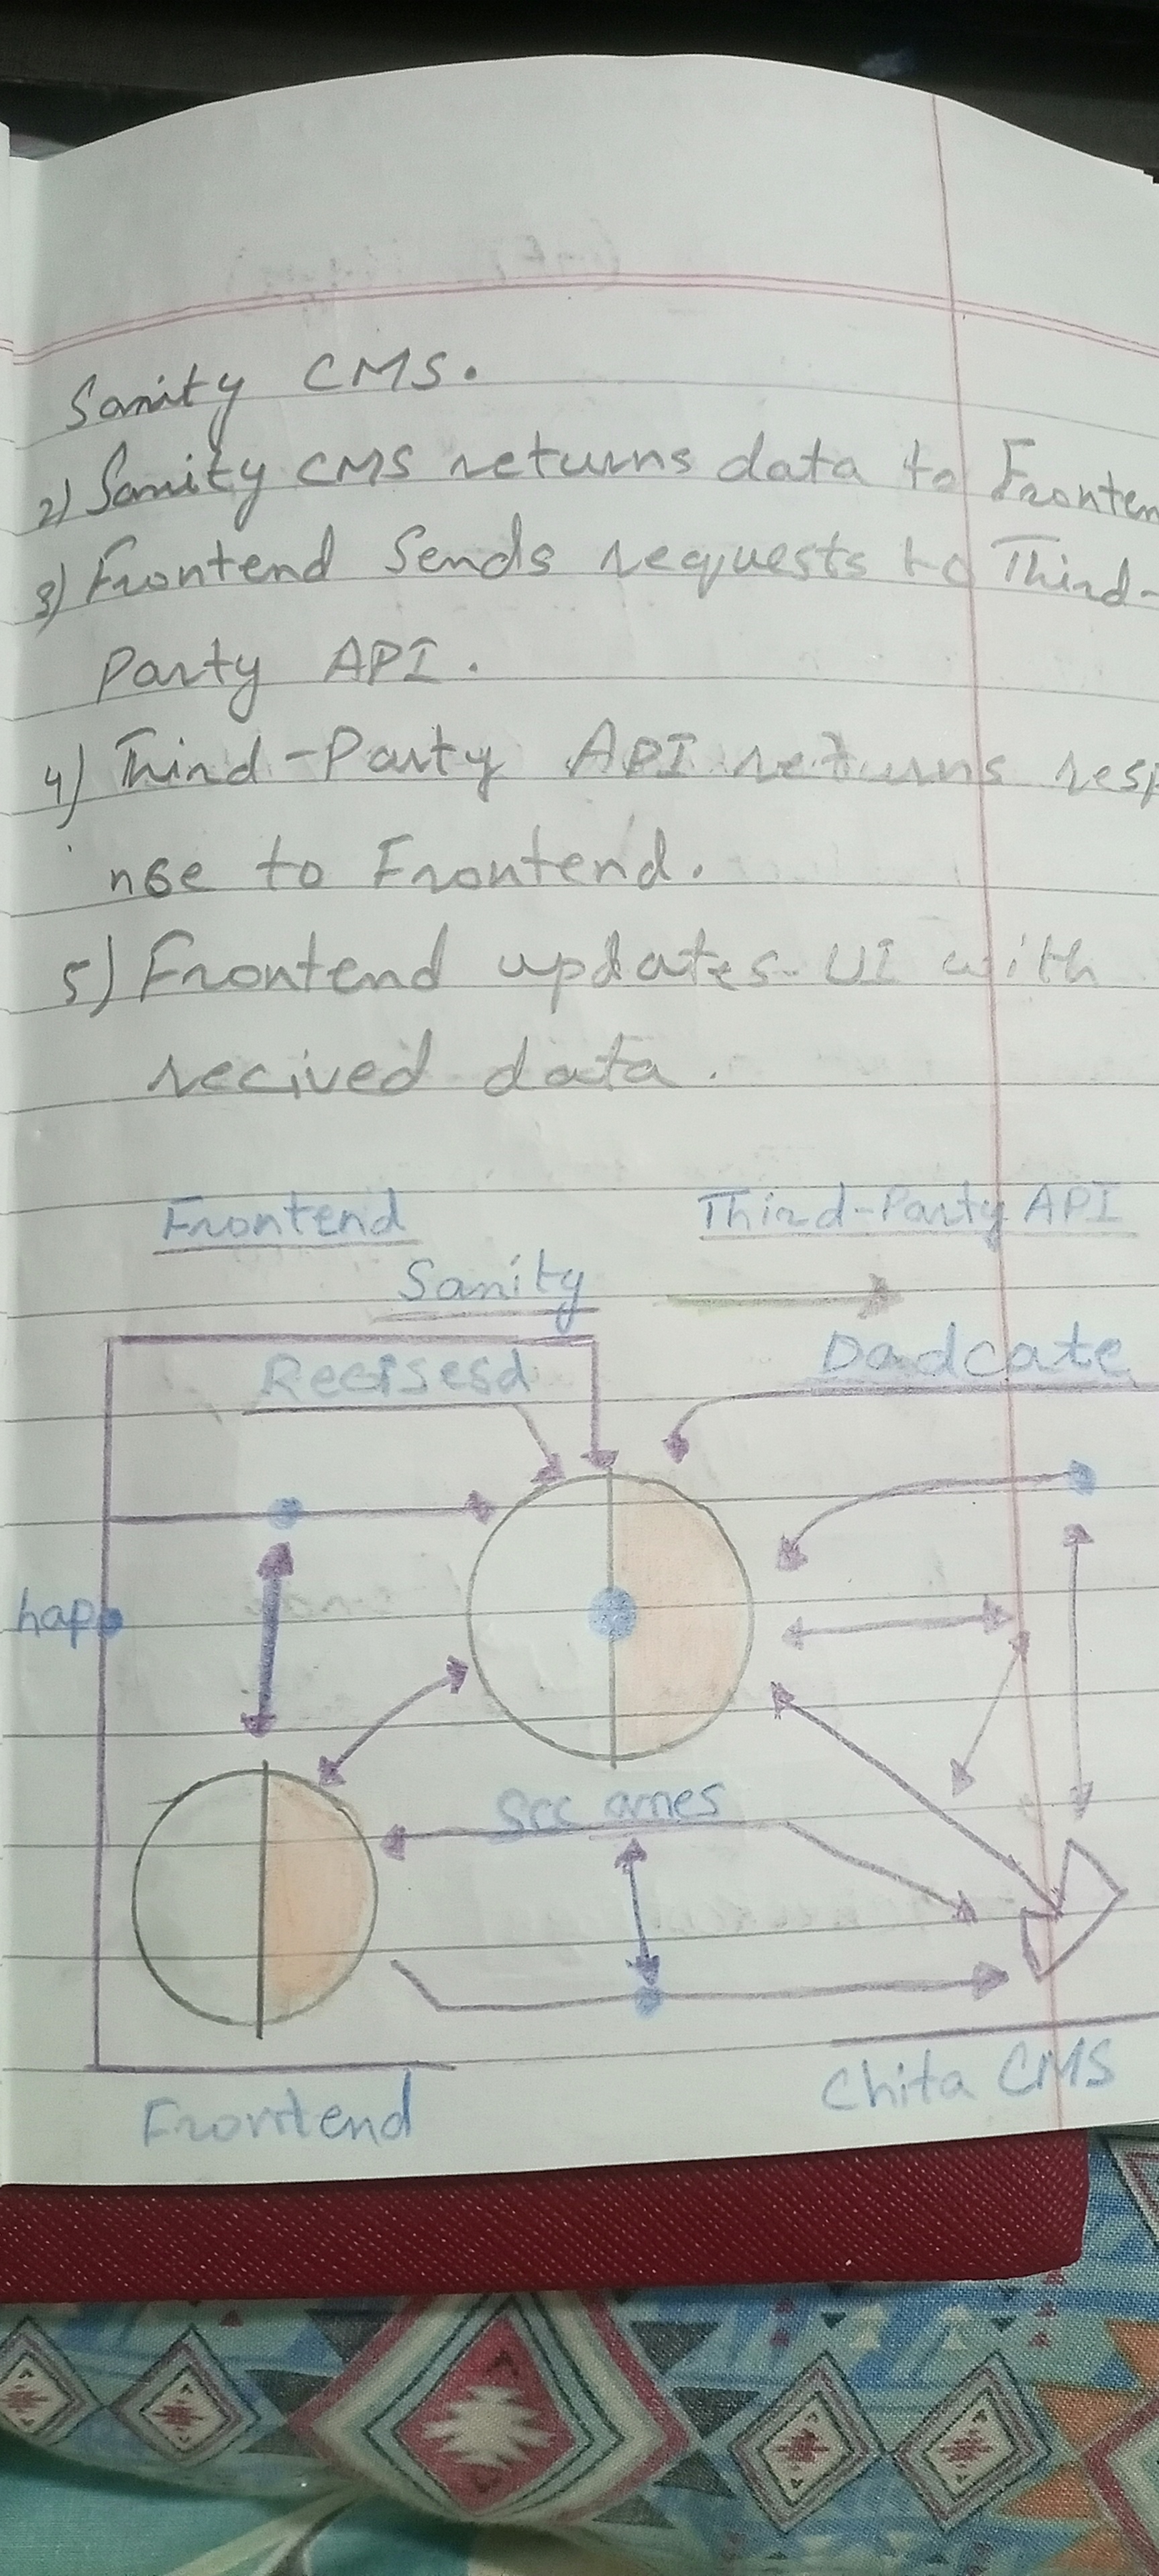 Sanity CMS.
2) Sanity CMS returns data to Fronten
3) Frontend Sends requests to Third-
Party API.
4) Third-Party API returns resp
nse to Frontend.
5) Frontend updates UI with
recived data.
Frontend Third-Party API
Sanity
Recisesd Dadcate
hap
Scc omes
Frontend Chita CMS